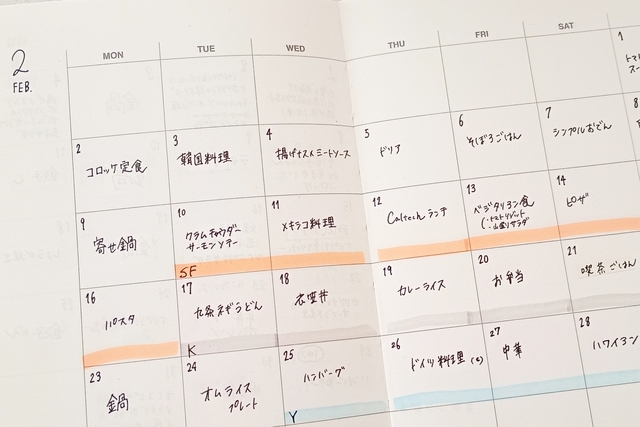 2
FEB.
MON TUE WED THU FRI SAT
1
トマト
スー
2
コロッケ定食
3
韓国料理
4
揚げナス×ミートソース
5
ドリア
6
そぼろごはん
7
シンプルおでん
8
9
寄せ鍋
10
クラムチャウダー
サーモンソテー
SF
11
メキシコ料理
12
Caltech ランチ
13
ベジタリアン食
(・トマトリゾット
・山盛りサラダ
14
ピザ
16
パスタ
17
九条ネギうどん
K
18
衣笠丼
19
カレーライス
20
お弁当
21
喫茶ごはん
23
鍋
24
オムライス
プレート
25
ハンバーグ
Y
26
ドイツ料理
27
中華
28
ハワイアン